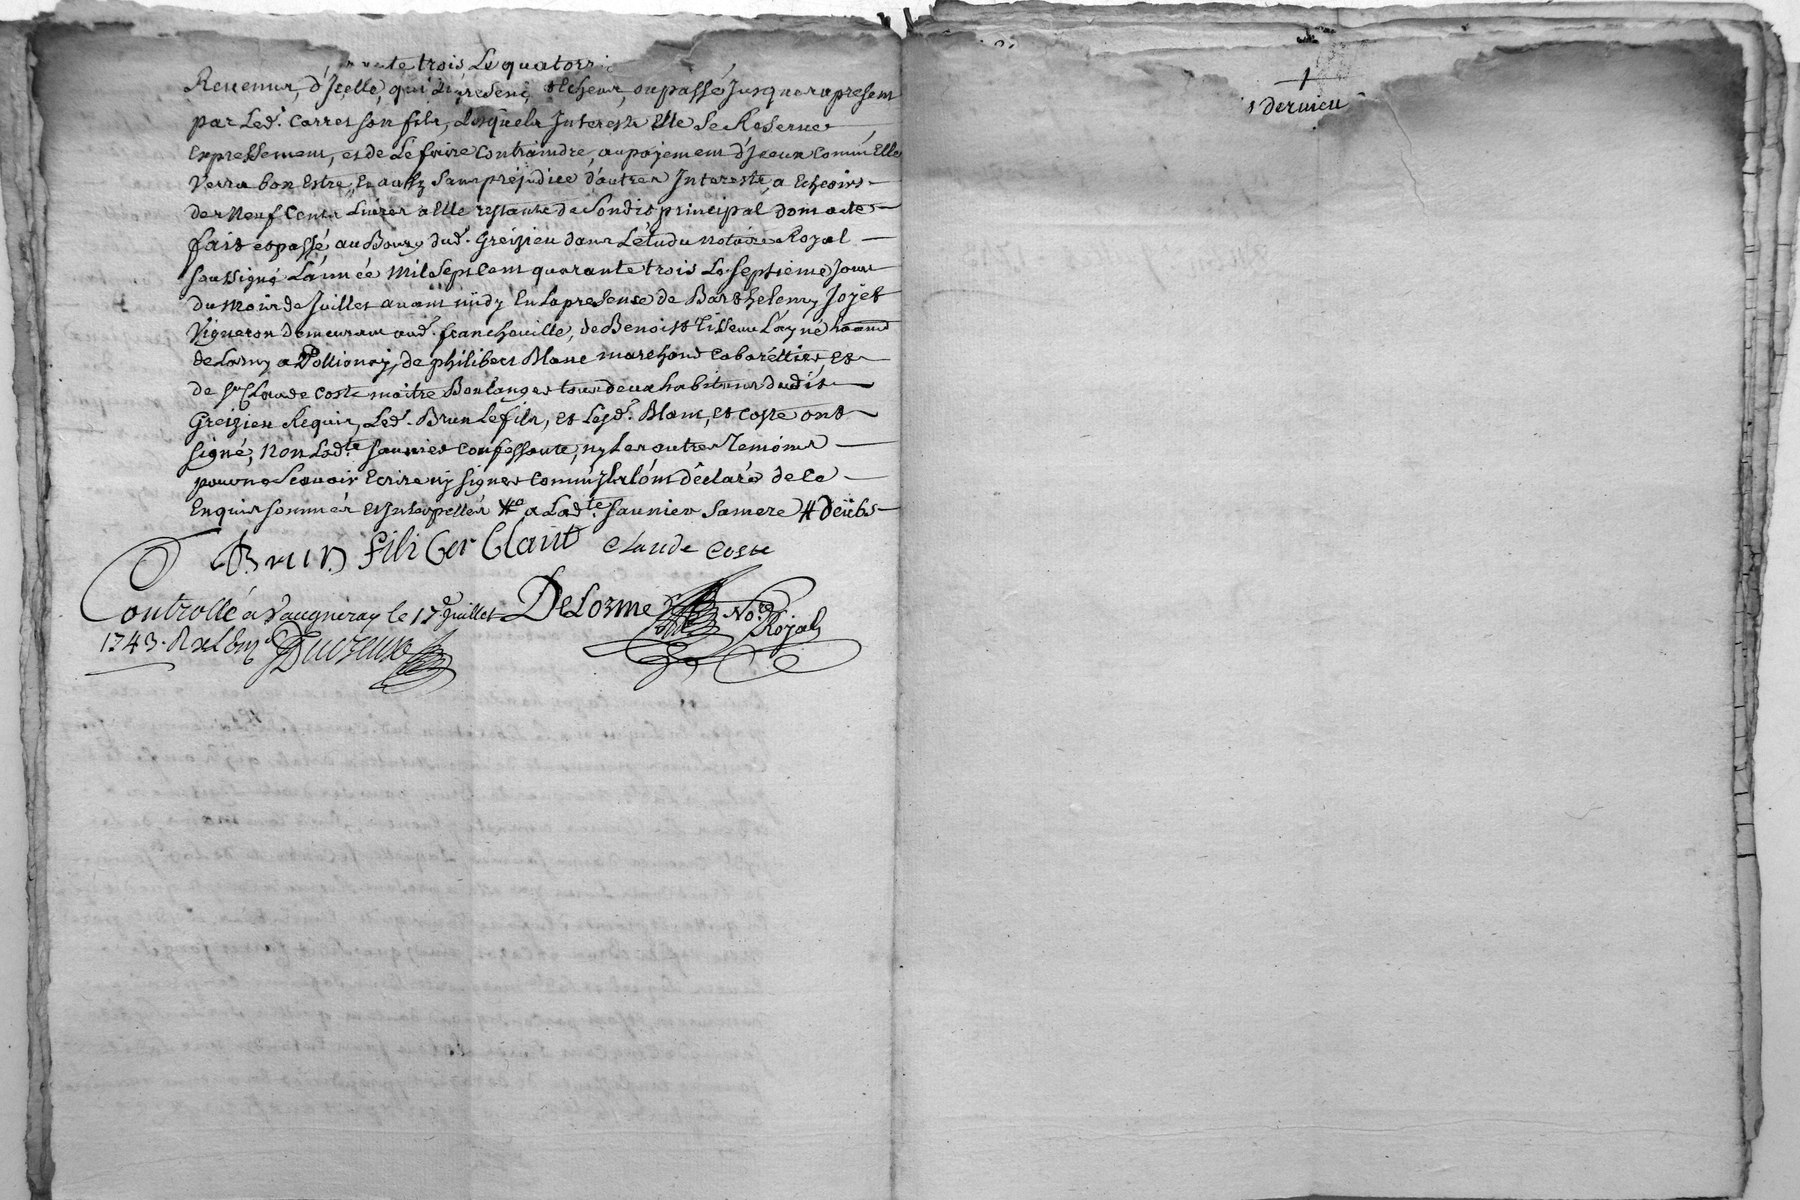 trois Le quatorz
Revenus, d'Jcelle, qui Echeus, ou passé Jusquer apresent
par Led. Carret son fils, Lesquels Interests Elle Se Reserve
Expressement, et de Le faire Contraindre, au payement d'Jceux Comm' Elle
Verra bon Estre, Et aussy Sans prejudice d'autres Interests a Echeoirs
des Neuf Cents Livres a Elle restante de Sondit principal dont acte
fait et passé au Bourg dud. Greizieu dans L'étude du notaire Royal
soussigné L'année Mil Sept Cent quarante trois Le Septieme Jour
du mois de Juillet avant midy En La presence de Barthelemy Joyet
Vigneron demeurant aud. francheuille, de Benoist Tisseur Layné
de a Pollionay, de philibert Blanc marchand Cabarettier, Et
de Sr. Claude Coste maitre Boulanger tous deux habitans dudit
Greizieu Requis, Led. Brun Le fils, et Lesd. Blanc, et Coste ont
signé, Non Lad.te Saunier Confessante, ny Les autres Temoins
pour ne Scavoir Ecrire ny signer Comm' Ils l'ont déclaré de ce
Enquis sommés et Interpellés # a Lad.te Saunier Sa mere #
Brun fili Ber Clant Claude Coste
Controllé a Vaugneray le 17e Juillet DeLorme No.re
1743. R Royal
s dernieu